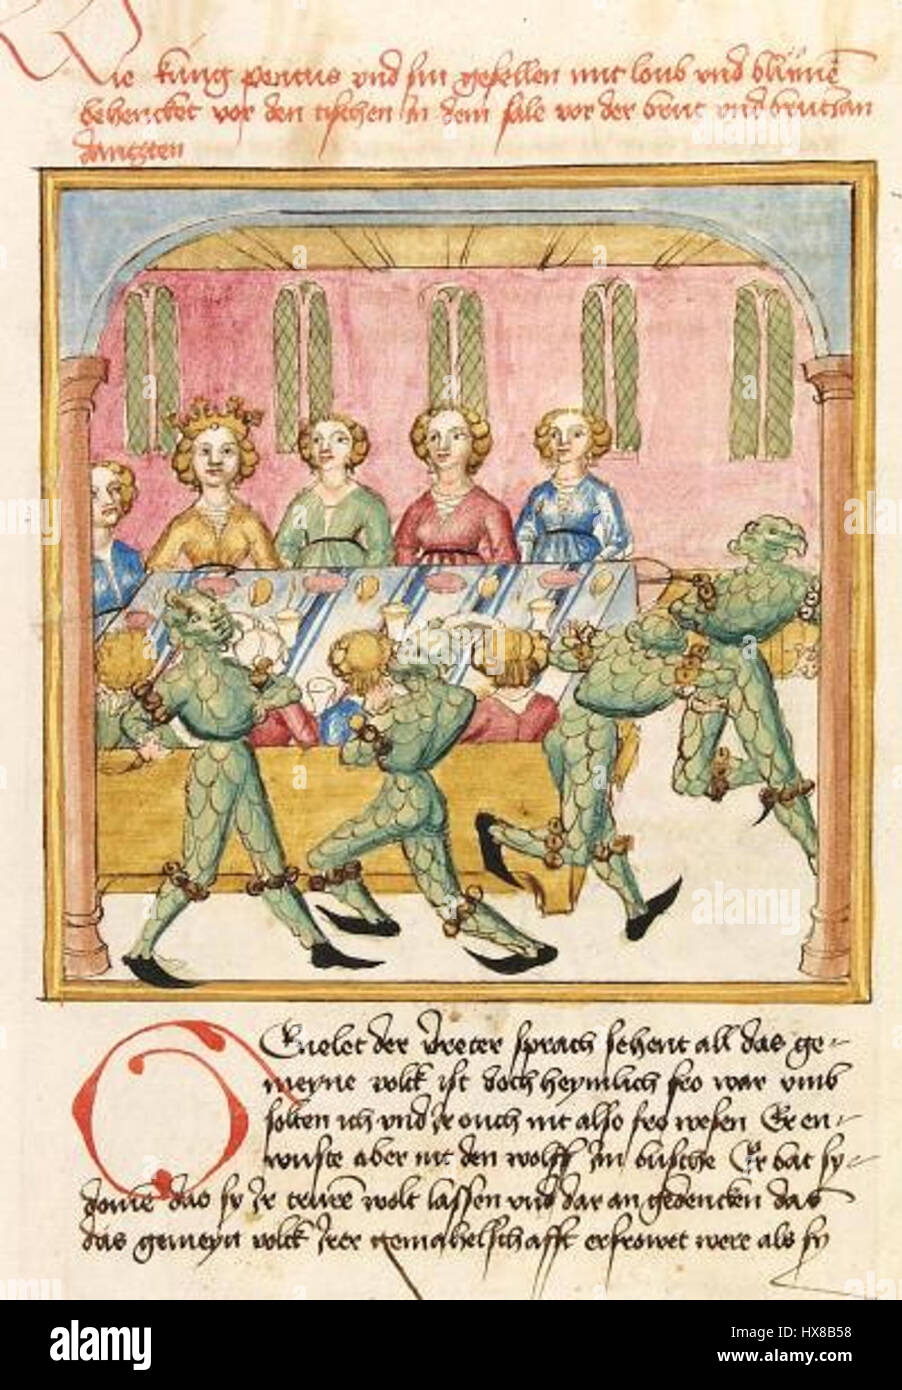 Wie kúng pontus vnd sin gesellen mit loub vnd blůmē
behencket vor den tischen jn dem sale vor der brut vnd brutgan
dantzten
GEnelet der vrecer sprach sehent all das ge-
meyne volck ist doch heymlich fro war vmb
solten ich vnd jr ouch nit also fro wesen Er en-
wuste aber nit den wolff jm busche Er bat sy-
donie das sy jr truren wolt lassen vnd dar an gedencken das
das gemeyn volck jrer gemahelschafft erfrowet were als sy
alamy
a
alamy
Image ID: HX8B58
www.alamy.com